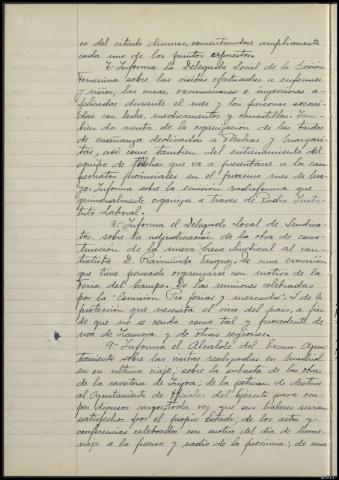 co del citado discurso, comentandose ampliamente
cada uno de los puntos expuestos.
7.- Informa la Delegada Local de la Sección
Femenina sobre las visitas efectuadas a enfermos
y niños, las curas, vacunaciones e inyecciones a-
plicadas durante el mes y las personas socorri-
das con leche, medicamentos y canastillas. Tam-
bien da cuenta de la organizacion de las tardes
de enseñanza dedicadas a Flechas y Margari-
tas, asi como tambien del entrenamiento del
equipo de Flechas que va a presentarse a los cam-
peonatos provinciales en el proximo mes de
Informa sobre la emisión radiofonica que
organiza a traves de Radio Insti-
tuto Laboral.
8.- Informa el Delegado Local de Sindica-
tos, sobre la adjudicacion de la obra de cons-
trucción de la nueva Casa Sindical al con-
tratista D. Raimundo Vasquez. De una excursión
que tiene pensado organizarse con motivo de la
Feria del Campo. De las reuniones celebradas
por la "Comision Pro ferias y mercados". Y de la
protección que necesita el vino del pais, a fin
de que no se venda como tal y procedente de
uva de Zamora y de otras regiones.
9.- Informa el Alcalde del Excmo Ayun-
tamiento sobre las visitas realizadas en Madrid
en su ultimo viaje; sobre la subasta de las obras
de la carretera de de la peticion de destino
al Ayuntamiento de Oficiales del Ejército para ocu-
par diversos cargos toda vez que sus haberes serian
satisfechos por el propio Estado; de los actos y
conferencias celebrados con motivo del dia de home-
naje a la prensa y radio de la provincia; de una